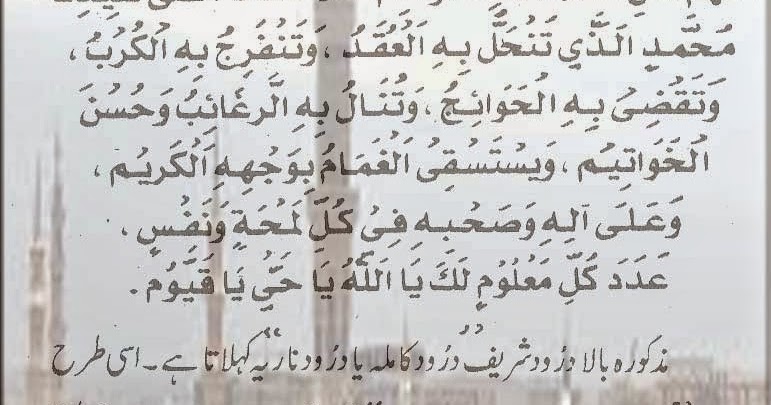 مُحَمَّدٍ الَّذِي تَنْحَلُّ بِهِ الْعُقَدُ، وَتَنْفَرِجُ بِهِ الْكُرَبُ،
وَتَقْضِىْ بِهِ الْحَوَائِجُ، وَتُنَالُ بِهِ الرَّغَائِبُ وَحُسْنَ
الْخَوَاتِيْمِ، وَيَسْتَسْقِىُ الْغَمَامُ بِوَجْهِهِ الْكَرِيْمِ،
وَعَلَى آلِهِ وَصَحْبِهِ فِىْ كُلِّ لَمْحَةٍ وَنَفْسٍ،
عَدَدَ كُلِّ مَعْلُوْمٍ لَكَ يَا اَللّٰهُ يَا حَيُّ يَا قَيُّوْمُ.
مذکورہ بالا درُود شریف ”درُود کاملہ یا درُود ناریہ“ کہلاتا ہے۔ اسی طرح